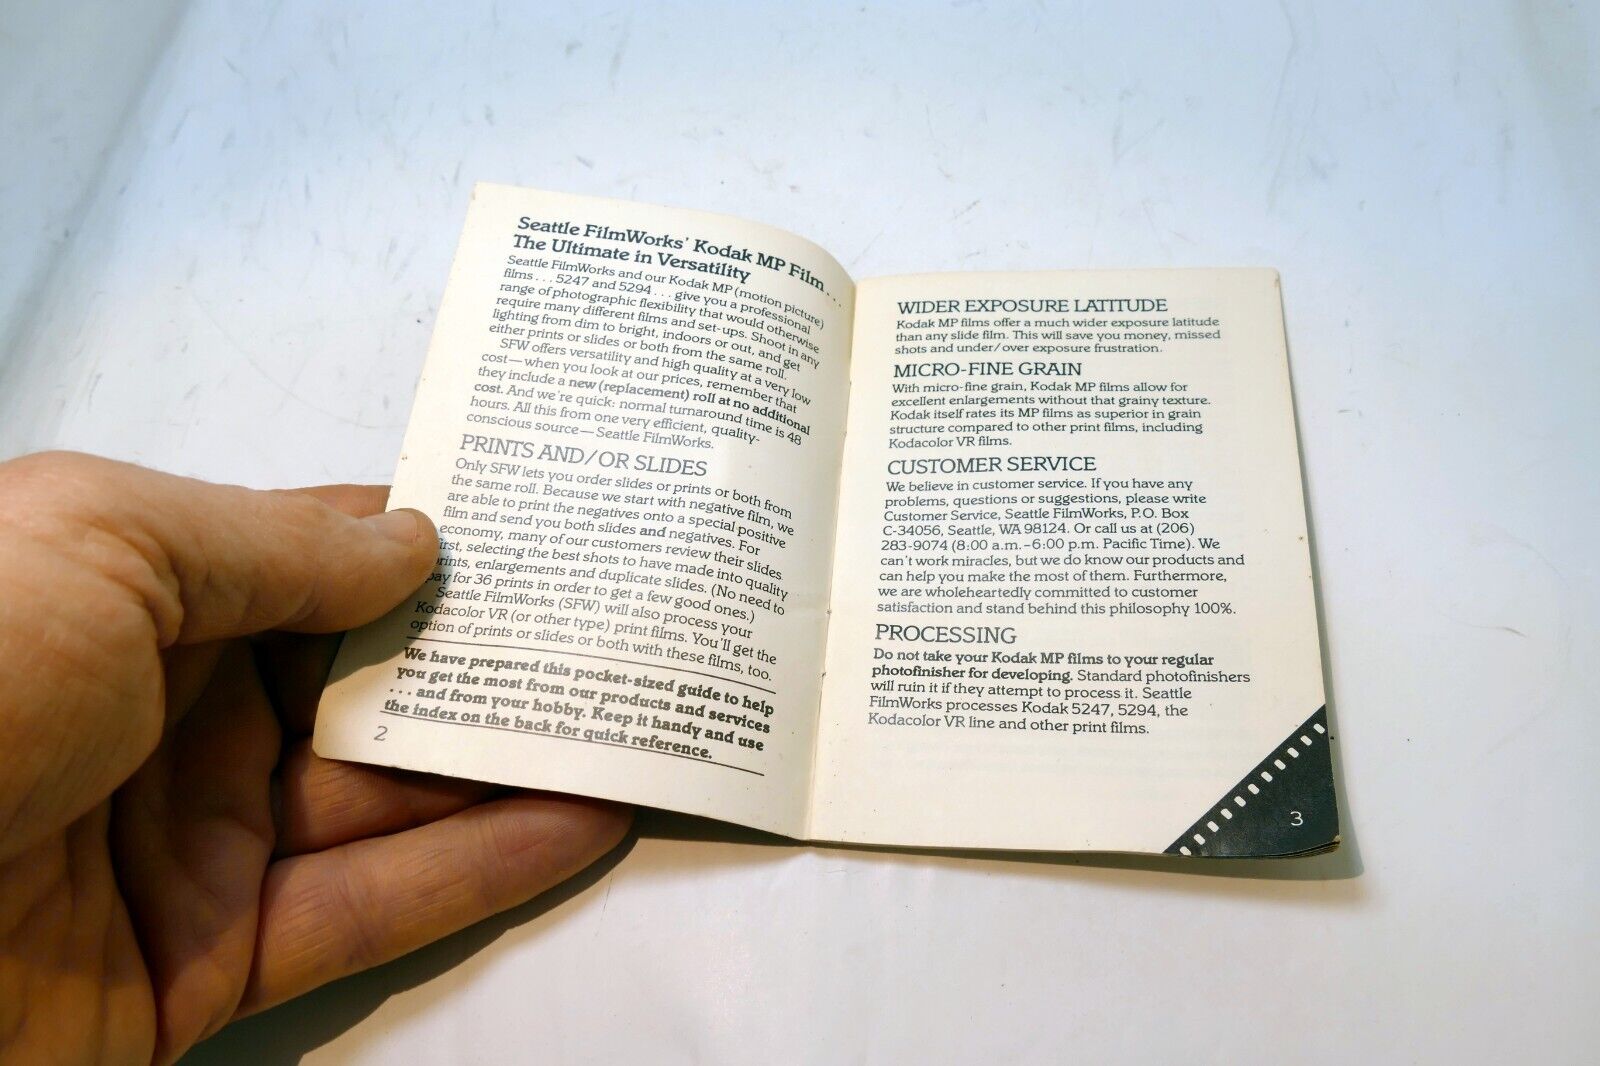 Seattle FilmWorks' Kodak MP Film...
The Ultimate in Versatility
Seattle FilmWorks and our Kodak MP (motion picture)
films . . . 5247 and 5294 . . . give you a professional
range of photographic flexibility that would otherwise
require many different films and set-ups. Shoot in any
lighting from dim to bright, indoors or out, and get
either prints or slides or both from the same roll.
SFW offers versatility and high quality at a very low
cost—when you look at our prices, remember that
they include a new (replacement) roll at no additional
cost. And we're quick: normal turnaround time is 48
hours. All this from one very efficient, quality-
conscious source—Seattle FilmWorks.
PRINTS AND/OR SLIDES
Only SFW lets you order slides or prints or both from
the same roll. Because we start with negative film, we
are able to print the negatives onto a special positive
film and send you both slides and negatives. For
economy, many of our customers review their slides
first, selecting the best shots to have made into quality
prints, enlargements and duplicate slides. (No need to
pay for 36 prints in order to get a few good ones.)
Seattle FilmWorks (SFW) will also process your
Kodacolor VR (or other type) print films. You'll get the
option of prints or slides or both with these films, too.
We have prepared this pocket-sized guide to help
you get the most from our products and services
. . . and from your hobby. Keep it handy and use
the index on the back for quick reference.
2
WIDER EXPOSURE LATITUDE
Kodak MP films offer a much wider exposure latitude
than any slide film. This will save you money, missed
shots and under/over exposure frustration.
MICRO-FINE GRAIN
With micro-fine grain, Kodak MP films allow for
excellent enlargements without that grainy texture.
Kodak itself rates its MP films as superior in grain
structure compared to other print films, including
Kodacolor VR films.
CUSTOMER SERVICE
We believe in customer service. If you have any
problems, questions or suggestions, please write
Customer Service, Seattle FilmWorks, P.O. Box
C-34056, Seattle, WA 98124. Or call us at (206)
283-9074 (8:00 a.m.–6:00 p.m. Pacific Time). We
can't work miracles, but we do know our products and
can help you make the most of them. Furthermore,
we are wholeheartedly committed to customer
satisfaction and stand behind this philosophy 100%.
PROCESSING
Do not take your Kodak MP films to your regular
photofinisher for developing. Standard photofinishers
will ruin it if they attempt to process it. Seattle
FilmWorks processes Kodak 5247, 5294, the
Kodacolor VR line and other print films.
3